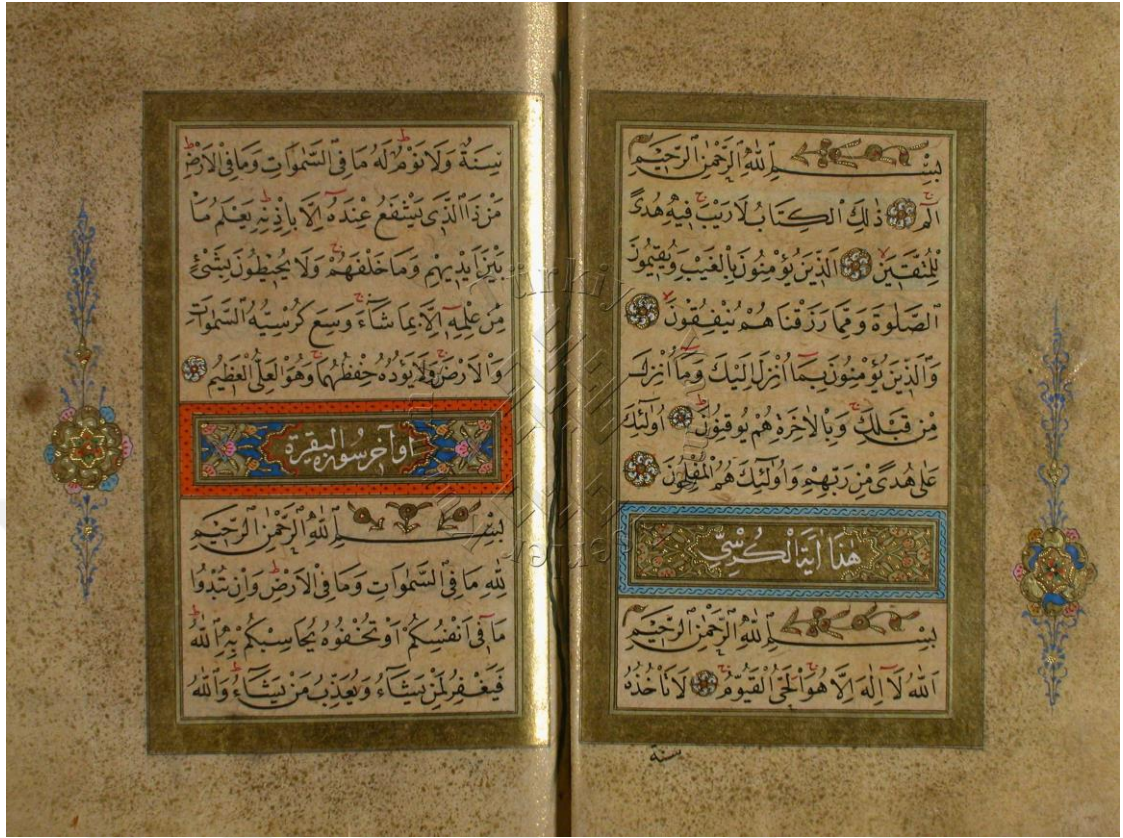 بِسْمِ اللّٰهِ الرَّحْمٰنِ الرَّحِيمِ
الٓمٓ ذٰلِكَ الْكِتَابُ لَا رَيْبَ فِيهِ هُدًى
لِلْمُتَّقِينَ الَّذِينَ يُؤْمِنُونَ بِالْغَيْبِ وَيُقِيمُونَ
الصَّلٰوةَ وَمِمَّا رَزَقْنَاهُمْ يُنْفِقُونَ
وَالَّذِينَ يُؤْمِنُونَ بِمَٓا اُنْزِلَ اِلَيْكَ وَمَٓا اُنْزِلَ
مِنْ قَبْلِكَ وَبِالْاٰخِرَةِ هُمْ يُوقِنُونَ اُولٰٓئِكَ
عَلٰى هُدًى مِنْ رَبِّهِمْ وَاُولٰٓئِكَ هُمُ الْمُفْلِحُونَ
هٰذَا اٰيَةُ الْكُرْسِيِّ
بِسْمِ اللّٰهِ الرَّحْمٰنِ الرَّحِيمِ
اَللّٰهُ لَٓا اِلٰهَ اِلَّا هُوَ الْحَيُّ الْقَيُّومُ لَا تَأْخُذُهُ
سنة
سِنَةٌ وَلَا نَوْمٌ لَهُ مَا فِي السَّمٰوَاتِ وَمَا فِي الْاَرْضِ
مَنْ ذَا الَّذِي يَشْفَعُ عِنْدَهُٓ اِلَّا بِاِذْنِهِ يَعْلَمُ مَا
بَيْنَ اَيْدِيهِمْ وَمَا خَلْفَهُمْ وَلَا يُحِيطُونَ بِشَيْءٍ
مِنْ عِلْمِهِٓ اِلَّا بِمَا شَٓاءَ وَسِعَ كُرْسِيُّهُ السَّمٰوَاتِ
وَالْاَرْضَ وَلَا يَؤُدُهُ حِفْظُهُمَا وَهُوَ الْعَلِيُّ الْعَظِيمُ
اواخر سورة البقرة
بِسْمِ اللّٰهِ الرَّحْمٰنِ الرَّحِيمِ
لِلّٰهِ مَا فِي السَّمٰوَاتِ وَمَا فِي الْاَرْضِ وَاِنْ تُبْدُوا
مَا فِٓي اَنْفُسِكُمْ اَوْ تُخْفُوهُ يُحَاسِبْكُمْ بِهِ اللّٰهُ
فَيَغْفِرُ لِمَنْ يَشَٓاءُ وَيُعَذِّبُ مَنْ يَشَٓاءُ وَاللّٰهُ